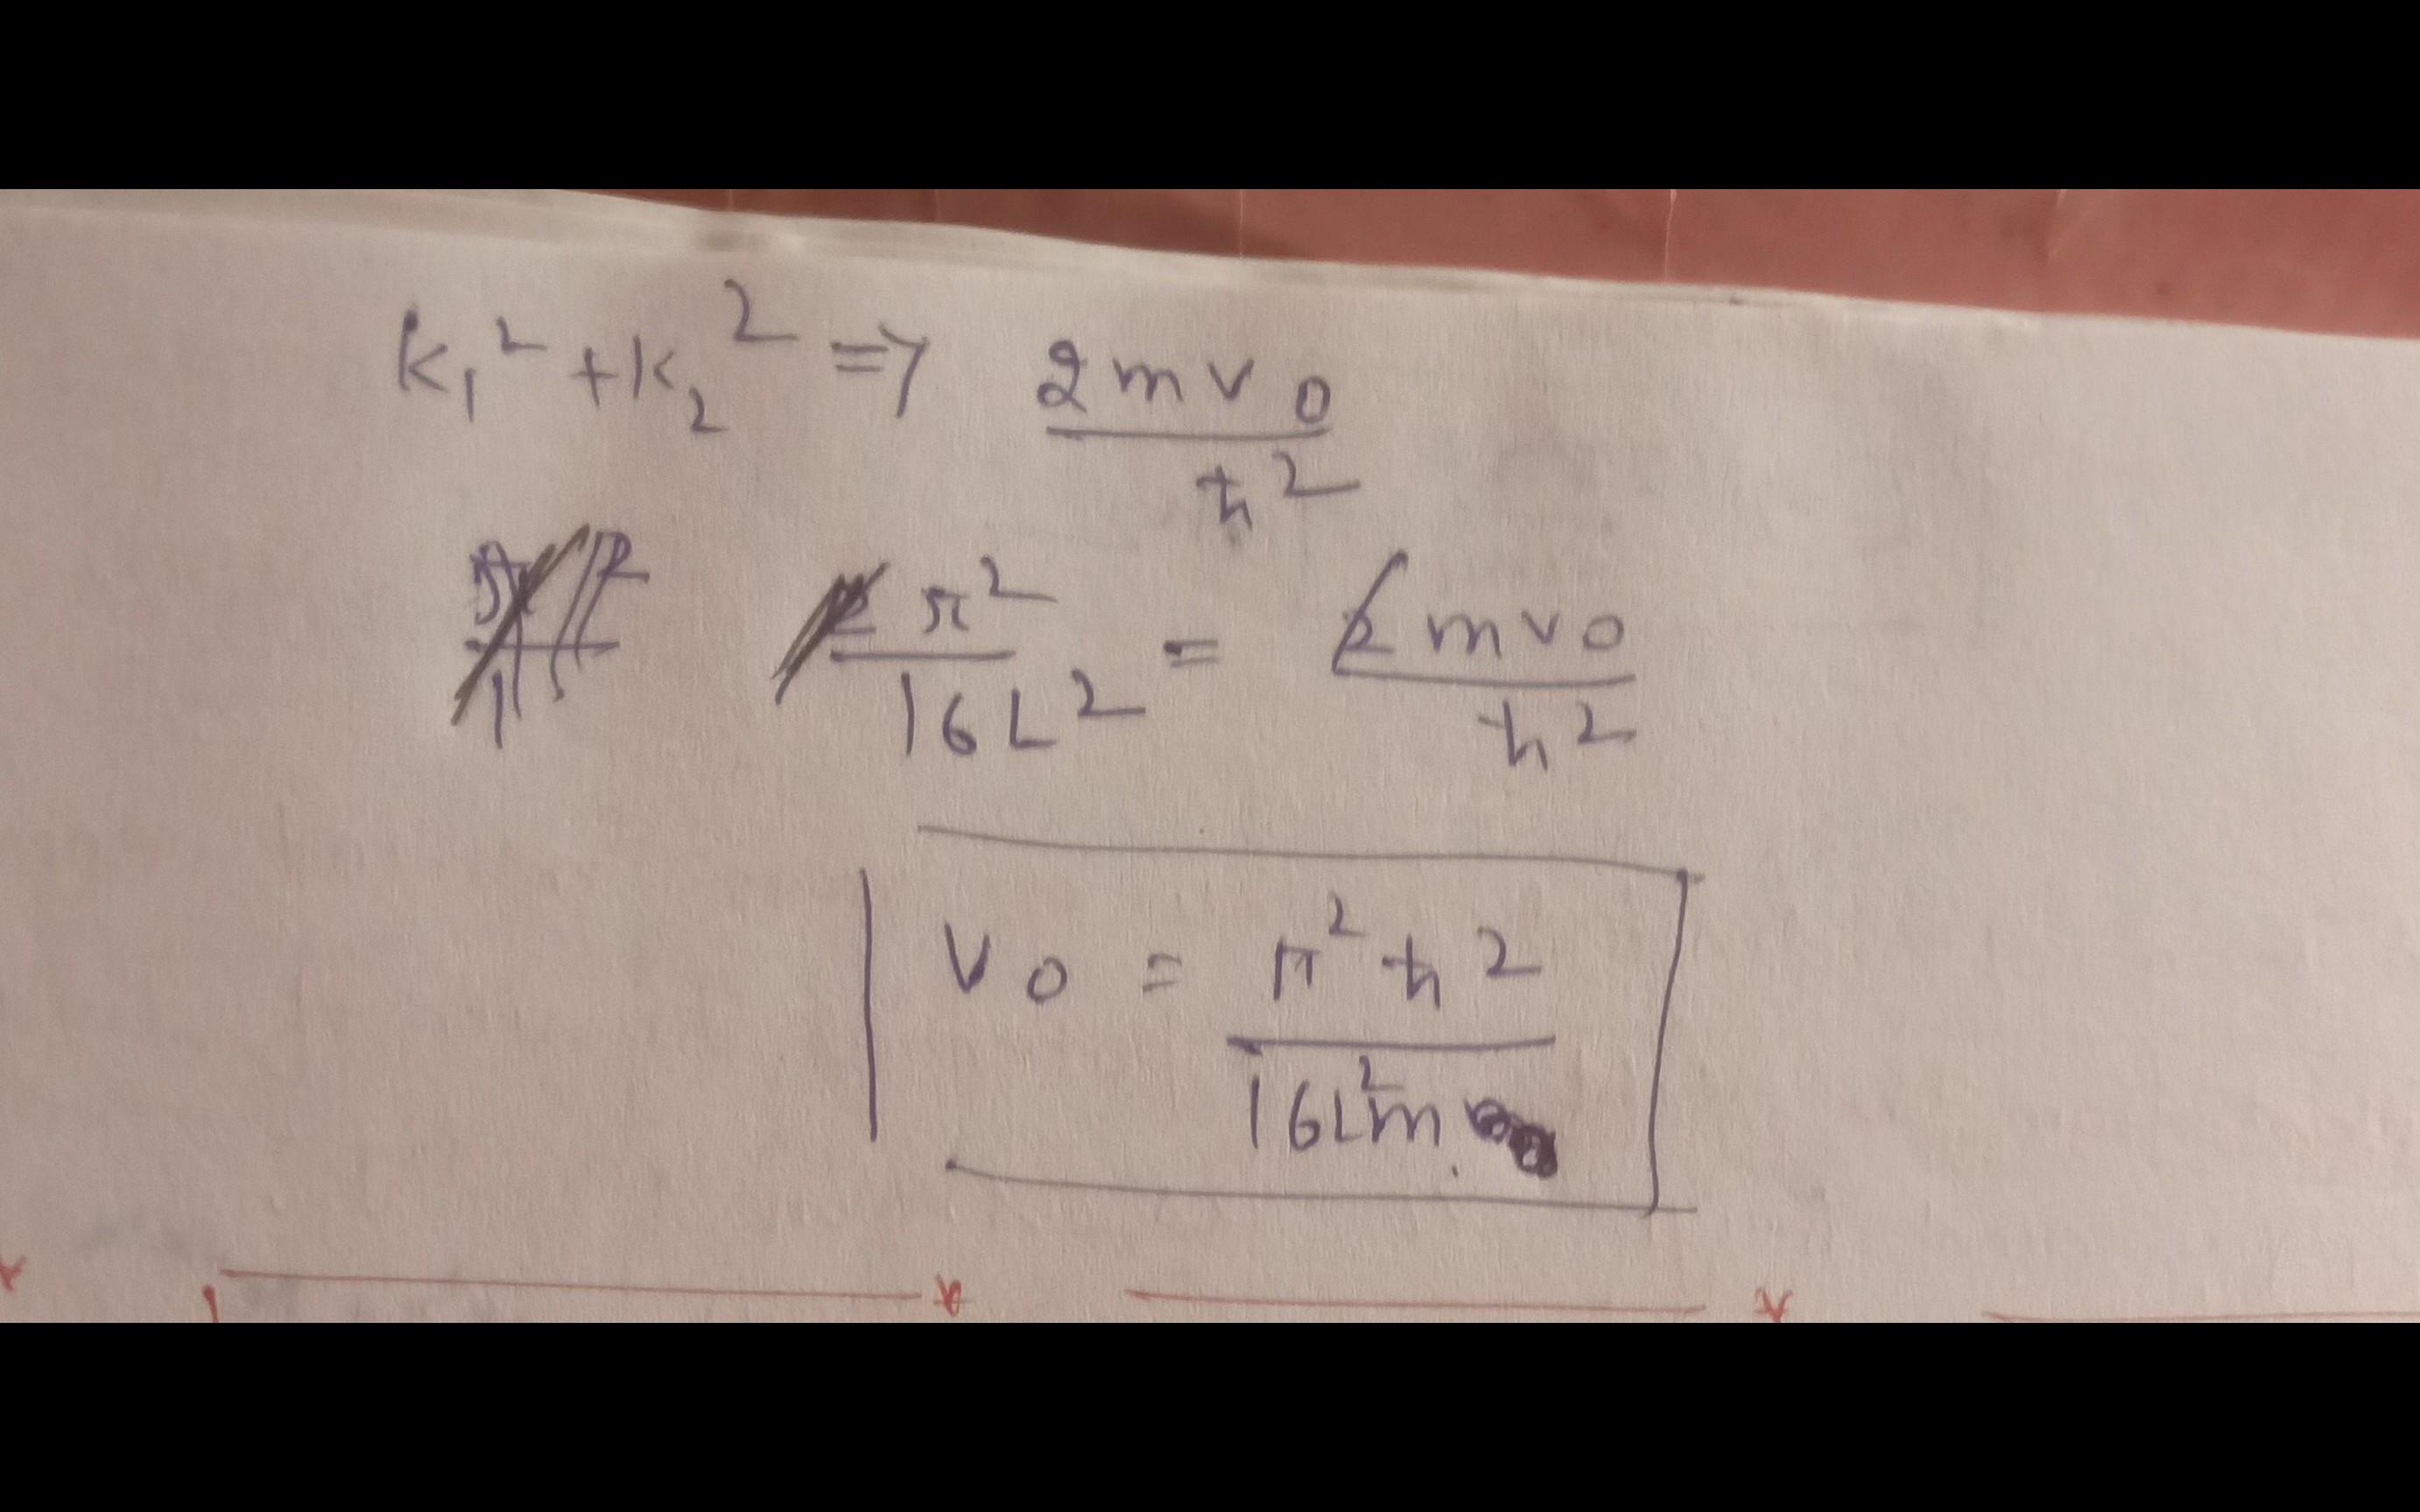 k₁² + k₂² => 2mv₀ / ħ²
2π² / 16L² = 2mv₀ / ħ²
v₀ = π²ħ² / 16L²m